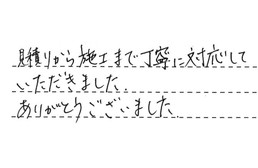 見積りから施工まで丁寧に対応して
いただきました。
ありがとうございました